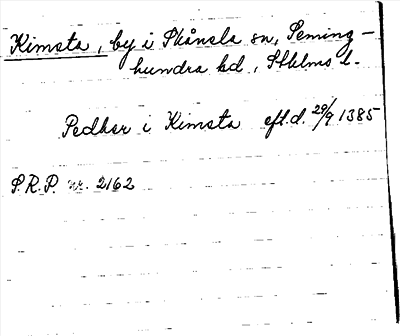 Kimsta, by i Skånela sn, Seming-
hundra hd, Sthlms l.
Pedher i Kimsta eft.d. 29/9 1385
S.R.P. nr. 2162